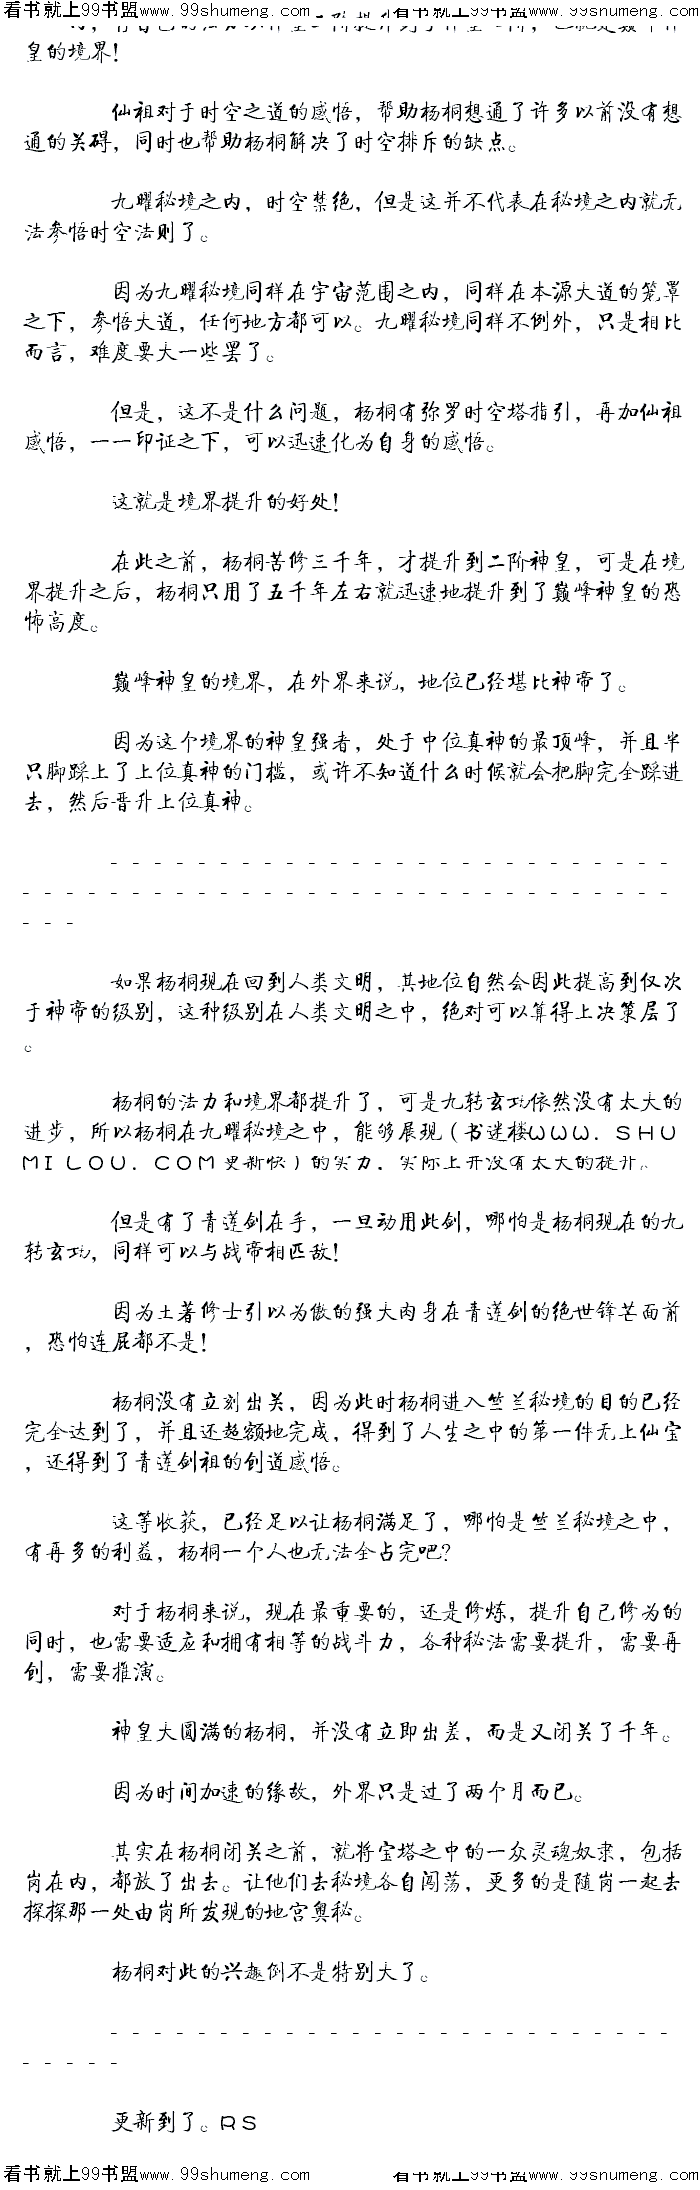 看书就上99书盟www.99shumeng.com 看书就上99书盟www.99shumeng.com
皇的境界！
仙祖对于时空之道的感悟，帮助杨桐想通了许多以前没有想
通的关碍，同时也帮助杨桐解决了时空排斥的缺点。
九曜秘境之内，时空禁绝，但是这并不代表在秘境之内就无
法参悟时空法则了。
因为九曜秘境同样在宇宙范围之内，同样在本源大道的笼罩
之下，参悟大道，任何地方都可以。九曜秘境同样不例外，只是相比
而言，难度要大一些罢了。
但是，这不是什么问题，杨桐有弥罗时空塔指引，再加仙祖
感悟，一一印证之下，可以迅速化为自身的感悟。
这就是境界提升的好处！
在此之前，杨桐苦修三千年，才提升到二阶神皇，可是在境
界提升之后，杨桐只用了五千年左右就迅速地提升到了巅峰神皇的恐
怖高度。
巅峰神皇的境界，在外界来说，地位已经堪比神帝了。
因为这个境界的神皇强者，处于中位真神的最顶峰，并且半
只脚踩上了上位真神的门槛，或许不知道什么时候就会把脚完全踩进
去，然后晋升上位真神。
- - - - - - - - - - - - - - - - - - - - - - - - - -
- - - - - - - - - - - - - - - - - - - - - - - - - - - - - -
- - -
如果杨桐现在回到人类文明，其地位自然会因此提高到仅次
于神帝的级别，这种级别在人类文明之中，绝对可以算得上决策层了
。
杨桐的法力和境界都提升了，可是九转玄功依然没有太大的
进步，所以杨桐在九曜秘境之中，能够展现（书迷楼WWW．SHU
MILOU．COM更新快）的实力，实际上并没有太大的提升。
但是有了青莲剑在手，一旦动用此剑，哪怕是杨桐现在的九
转玄功，同样可以与战帝相匹敌！
因为土著修士引以为傲的强大肉身在青莲剑的绝世锋芒面前
，恐怕连屁都不是！
杨桐没有立刻出关，因为此时杨桐进入竺兰秘境的目的已经
完全达到了，并且还超额地完成，得到了人生之中的第一件无上仙宝
，还得到了青莲剑祖的创道感悟。
这等收获，已经足以让杨桐满足了，哪怕是竺兰秘境之中，
有再多的利益，杨桐一个人也无法全占完吧？
对于杨桐来说，现在最重要的，还是修炼，提升自己修为的
同时，也需要适应和拥有相等的战斗力，各种秘法需要提升，需要再
创，需要推演。
神皇大圆满的杨桐，并没有立即出差，而是又闭关了千年。
因为时间加速的缘故，外界只是过了两个月而已。
其实在杨桐闭关之前，就将宝塔之中的一众灵魂奴隶，包括
岗在内，都放了出去。让他们去秘境各自闯荡，更多的是随岗一起去
探探那一处由岗所发现的地宫奥秘。
杨桐对此的兴趣倒不是特别大了。
- - - - - - - - - - - - - - - - - - - - - - - - - -
- - - - -
更新到了。RS
看书就上99书盟www.99shumeng.com 看书就上99书盟www.99shumeng.com